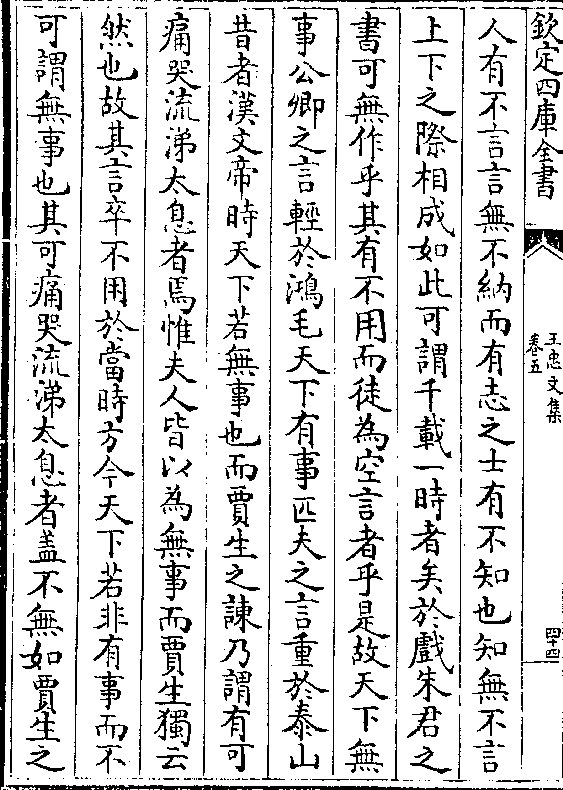 欽定四庫全書
王忠文集
卷五
四十四
人有不言言無不納而有志之士有不知也知無不言
上下之際相成如此可謂千載一時者矣於戲朱君之
書可無作乎其有不用而徒為空言者乎是故天下無
事公卿之言輕於鴻毛天下有事匹夫之言重於泰山
昔者漢文帝時天下若無事也而賈生之諫乃謂有可
痛哭流涕太息者焉惟夫人皆以為無事而賈生獨云
然也故其言卒不用於當時方今天下若非有事而不
可謂無事也其可痛哭流涕太息者盖不無如賈生之